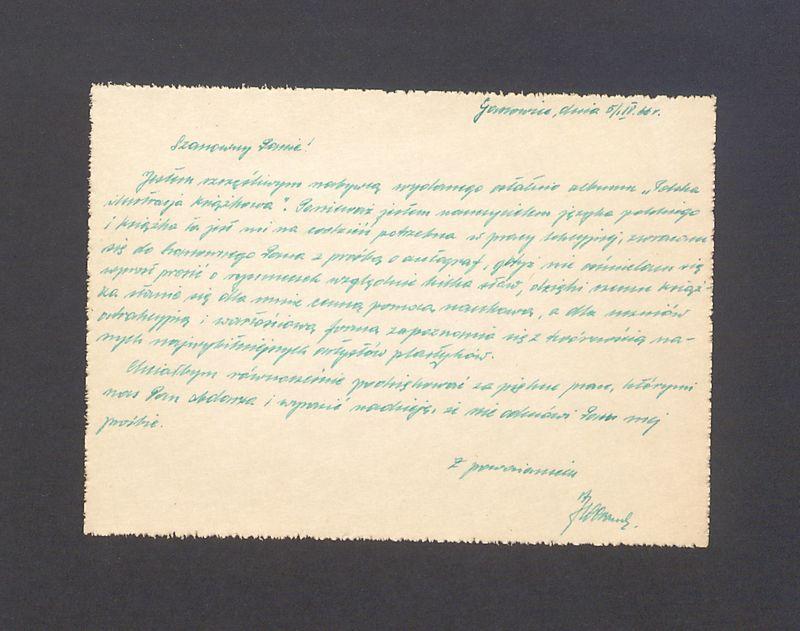 dnia 5/IV. 66 r.
Szanowny Panie!
Jestem szczęśliwym nabywcą wydanego ostatnio albumu "Polska
ilustracja książkowa". Ponieważ jestem nauczycielem języka polskiego
i książka ta jest mi na codzień potrzebna w pracy lekcyjnej, zwracam
się do Szanownego Pana z prośbą o autograf, gdyż nie ośmielam się
wprost prosić o rysuneczek względnie kilka słów, dzięki czemu książ-
ka stanie się dla mnie cenną pomocą naukową, a dla uczniów
atrakcyjną i wartościową formą zapoznania się z twórczością na-
szych najwybitniejszych artystów plastyków.
Chciałbym równocześnie podziękować za piękne prace, którymi
nas Pan obdarza i wyrazić nadzieję, że nie odmówi Pan mej
prośbie.
Z poważaniem